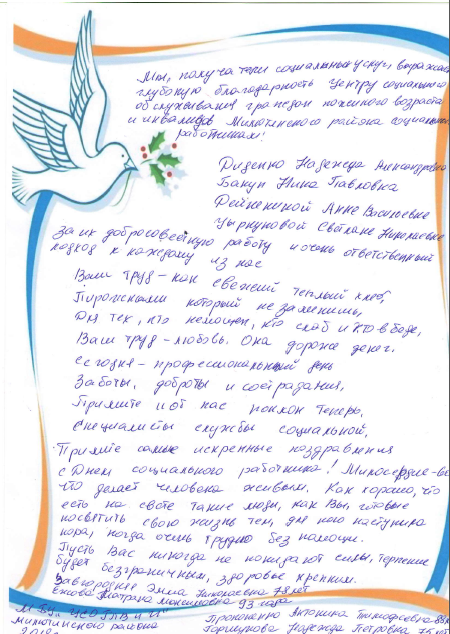 Мы, получатели социальных услуг, выражаем
глубокую благодарность Центру социального
обслуживания граждан пожилого возраста
и инвалидов Милютинского района социальным
работникам!
Диденко Надежда Александровна
Бакул Нина Павловна
Рейнекиной Анне Васильевне
Цыркуновой Светлане Николаевне
За их добросовестную работу и очень ответственный
подход к каждому из нас
Ваш труд – как свежий теплый хлеб,
Пирожками который не заменишь,
Для тех, кто немощен, кто слаб и кто в беде,
Ваш труд – любовь. Она дороже денег.
Сегодня – профессиональный день
Заботы, доброты и сострадания,
Примите и от нас поклон теперь,
Специалисты службы социальной.
Примите самые искренные поздравления
с Днем социального работника! Милосердие – во
что делает человека живым. Как хорошо, что
есть на свете такие люди, как Вы, готовые
посвятить свою жизнь тем, для кого наступила
пора, когда очень трудно без помощи.
Пусть Вас никогда не покидают силы, терпение
будет безграничным, здоровье крепким.
Завгородняя Эмма Николаевна 78 лет
Екатерина Максимовна 93 года
МБУ "ЦСОГПВ и И"
Милютинского района
Прокопенко Антонина Тимофеевна
Горшукова Надежда Петровна 75 лет